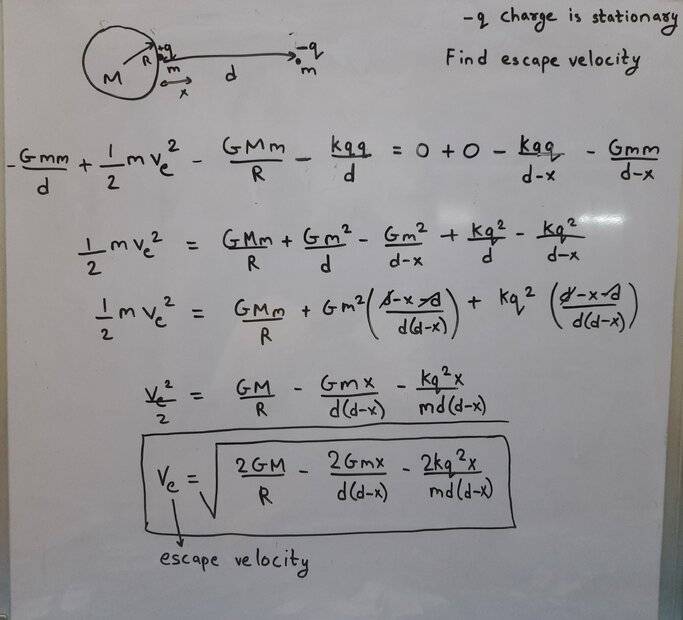 -q charge is stationary
Find escape velocity
M R +q m x d -q m
-Gmm/d + 1/2 m Ve^2 - GMm/R - kqq/d = 0 + 0 - kqq/d-x - Gmm/d-x
1/2 m Ve^2 = GMm/R + Gm^2/d - Gm^2/d-x + kq^2/d - kq^2/d-x
1/2 m Ve^2 = GMm/R + Gm^2 (d-x-d/d(d-x)) + kq^2 (d-x-d/d(d-x))
Ve^2/2 = GM/R - Gmx/d(d-x) - kq^2x/md(d-x)
Ve = √(2GM/R - 2Gmx/d(d-x) - 2kq^2x/md(d-x))
escape velocity